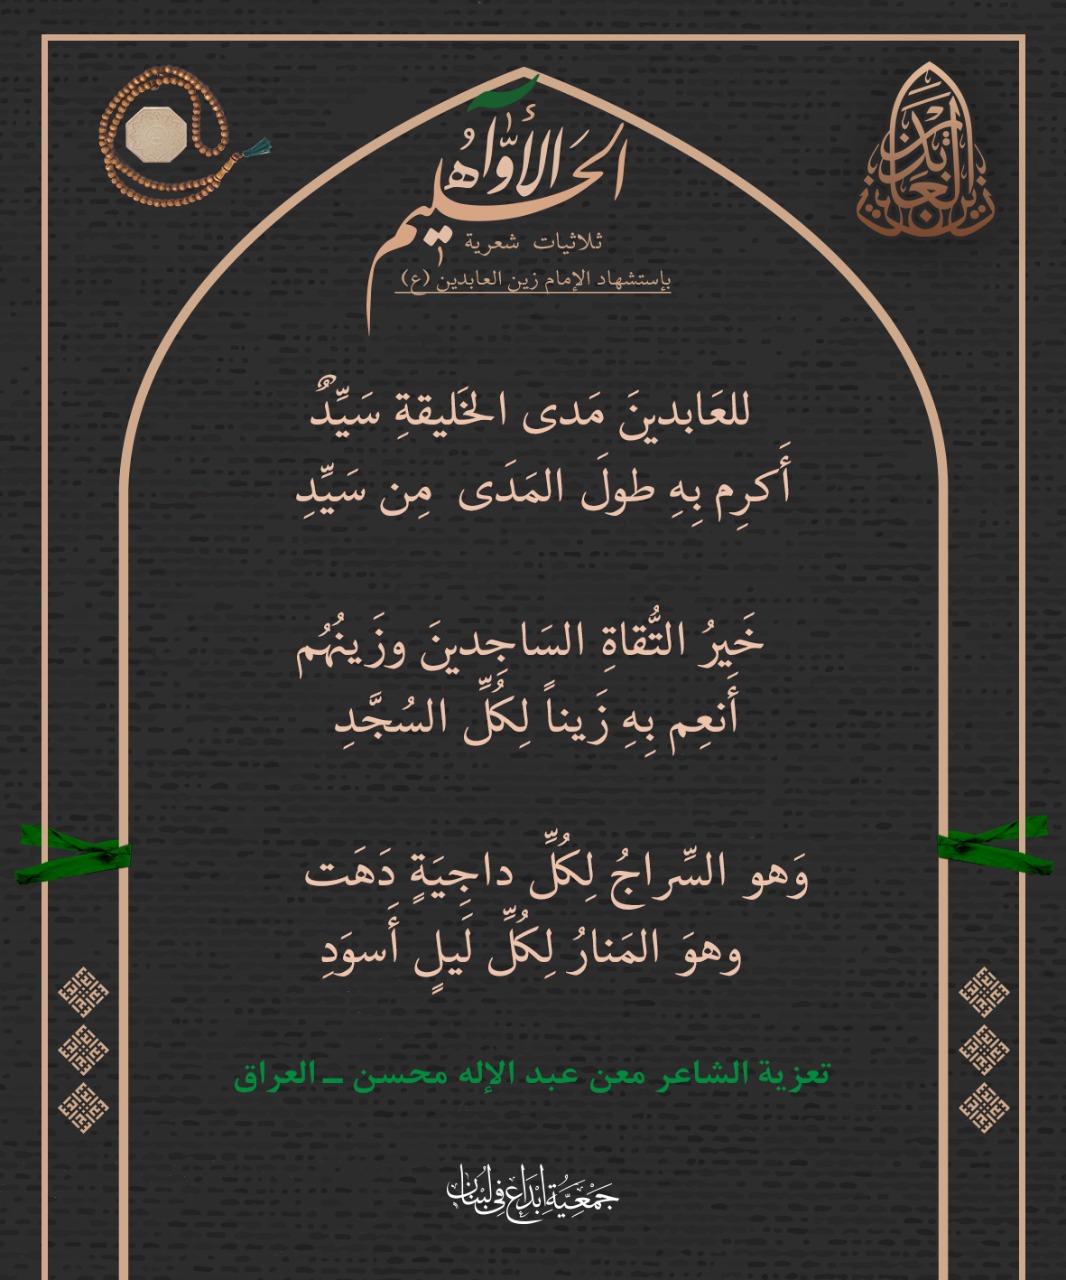 زين العابدين
الأوّاه الحليم
ثلاثيات شعرية
بإستشهاد الإمام زين العابدين (ع)
للعَابدينَ مَدى الخَليقةِ سَيِّدٌ
أَكرِم بِهِ طولَ المَدَى مِن سَيِّدِ
خَيرُ التُّقاةِ السَاجِدينَ وزَينُهُم
أَنعِم بِهِ زَيناً لِكُلِّ السُجَّدِ
وَهو السِّراجُ لِكُلِّ داجِيَةٍ دَهَت
وهوَ المَنارُ لِكُلِّ لَيلٍ أَسوَدِ
تعزية الشاعر معن عبد الإله محسن ـ العراق
جَمْعِيَّةُ إبْدَاع فِي لُبْنَان